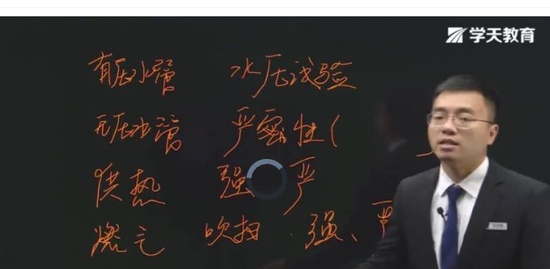 学天教育
有压水管 水压试验
无压水管 严密性(
供热 强 严
燃气 吹扫 · 强、严